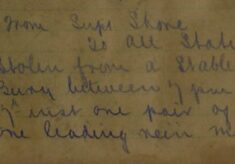 From Supt Shore
To All Stati
Stolen from a Stable
Bury between 7 pm
7th inst one pair of
one leading rein m